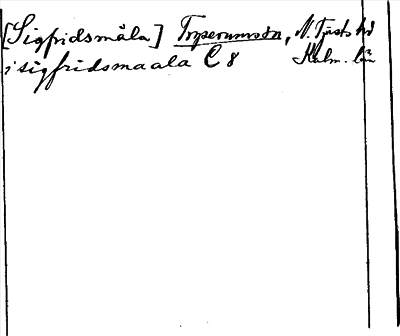 [Sigfridsmåla] Torperumsón, N. Tjusts hd
i sigfridsmaala C 8 Kalm. län